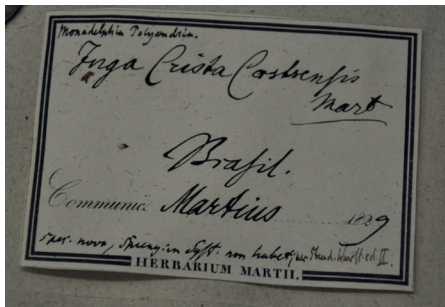 Monadelphia Polyandria.
Inga Crista Castrensis
Mart
Brasil.
Communic. Martius 1829
spec. nova, Spreng. in Syst. non habet,
HERBARIUM MARTII.